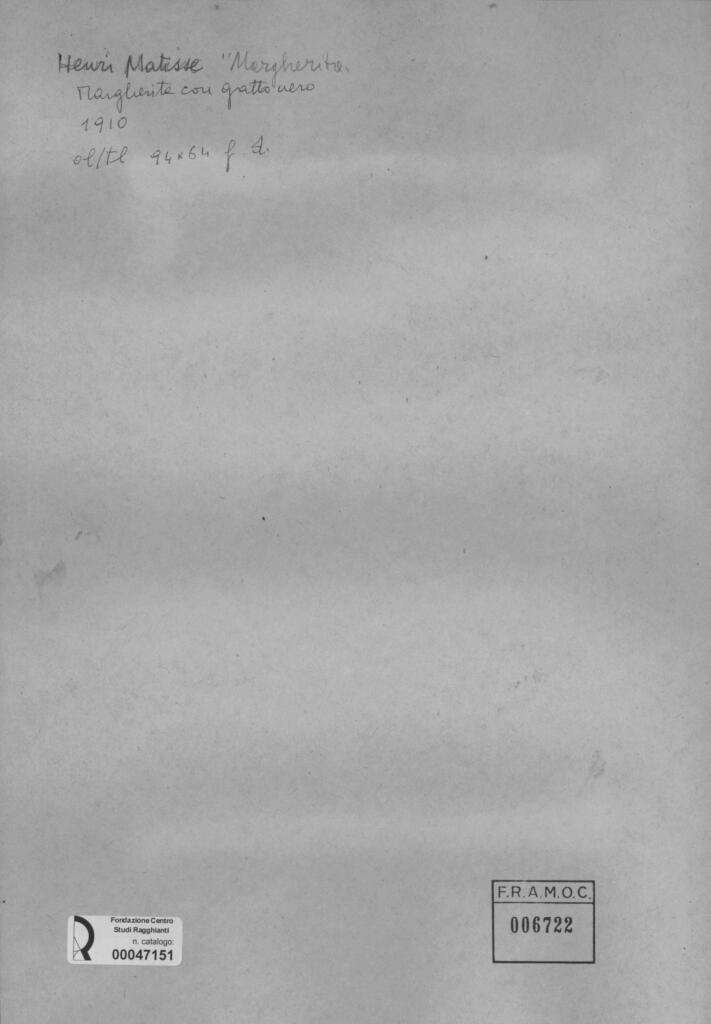 Henri Matisse "Margherita
Margherita con gatto nero
1910
ol/tl 94x64 f. d.
Fondazione Centro
Studi Ragghianti
n. catalogo:
00047151
F.R.A.M.O.C.
006722